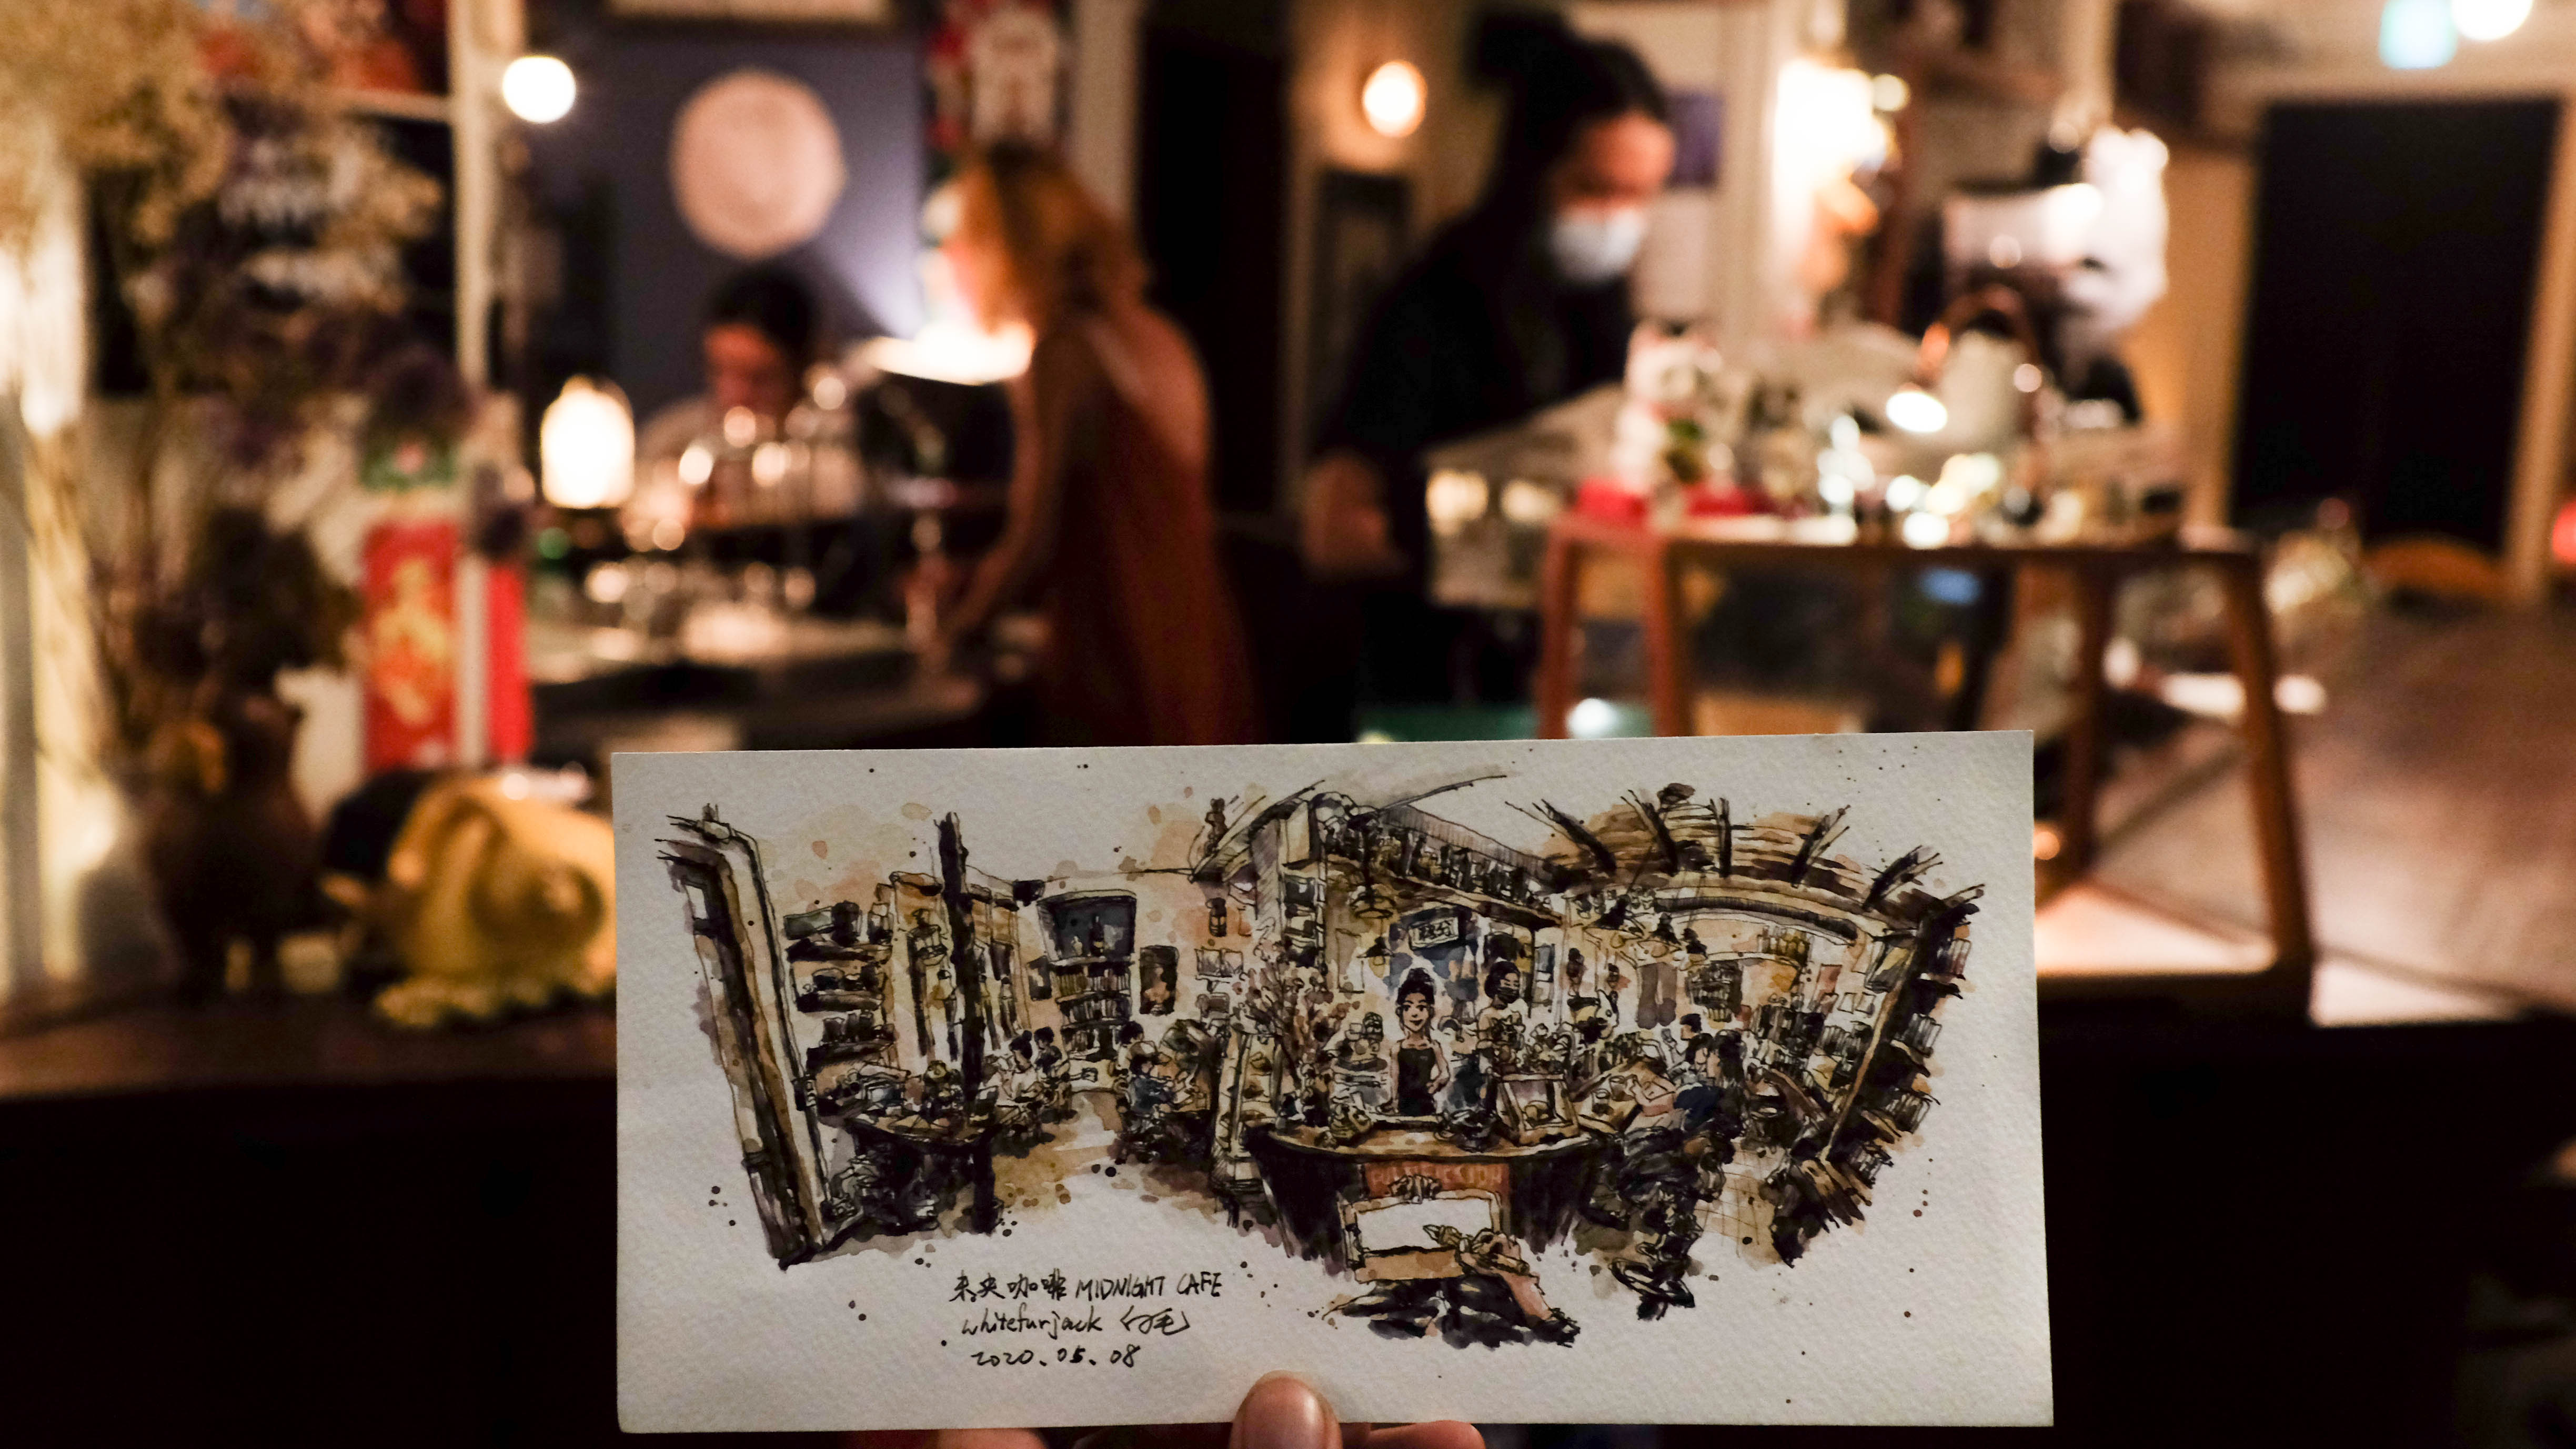 未央咖啡 MIDNIGHT CAFE
whitefurjack 白毛
2020.05.08